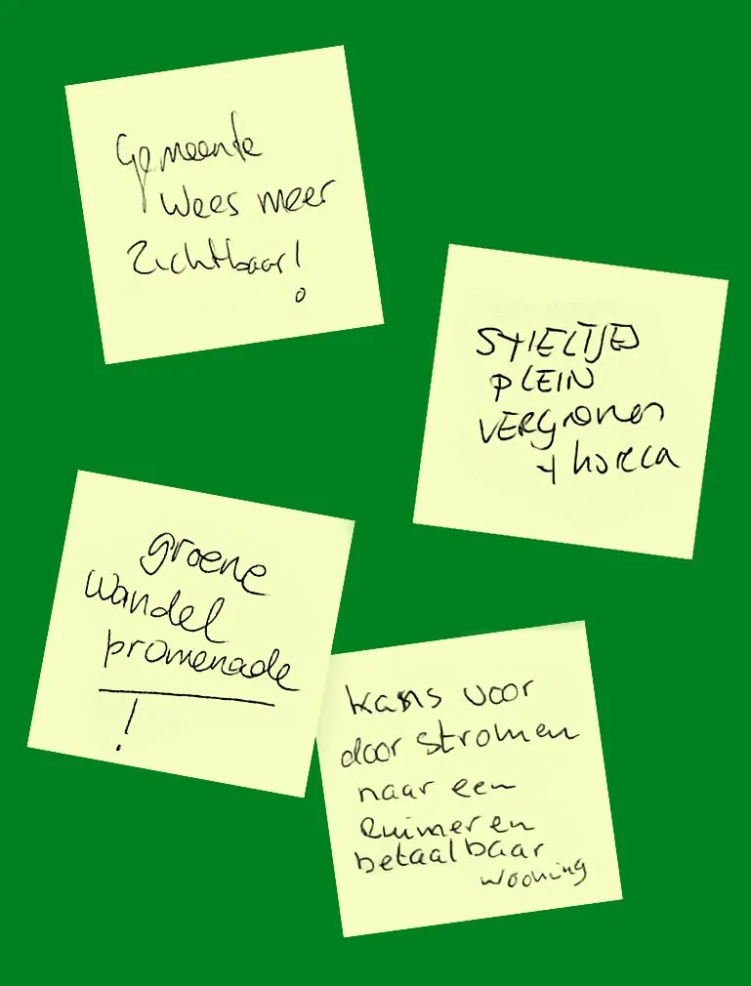 Gemeente
Wees meer
Zichtbaar!
STIELTJES
PLEIN
VERGronen
+ horeca
groene
wandel
promenade
!
kans voor
door stromen
naar een
Ruimer en
betaalbaar
wooning